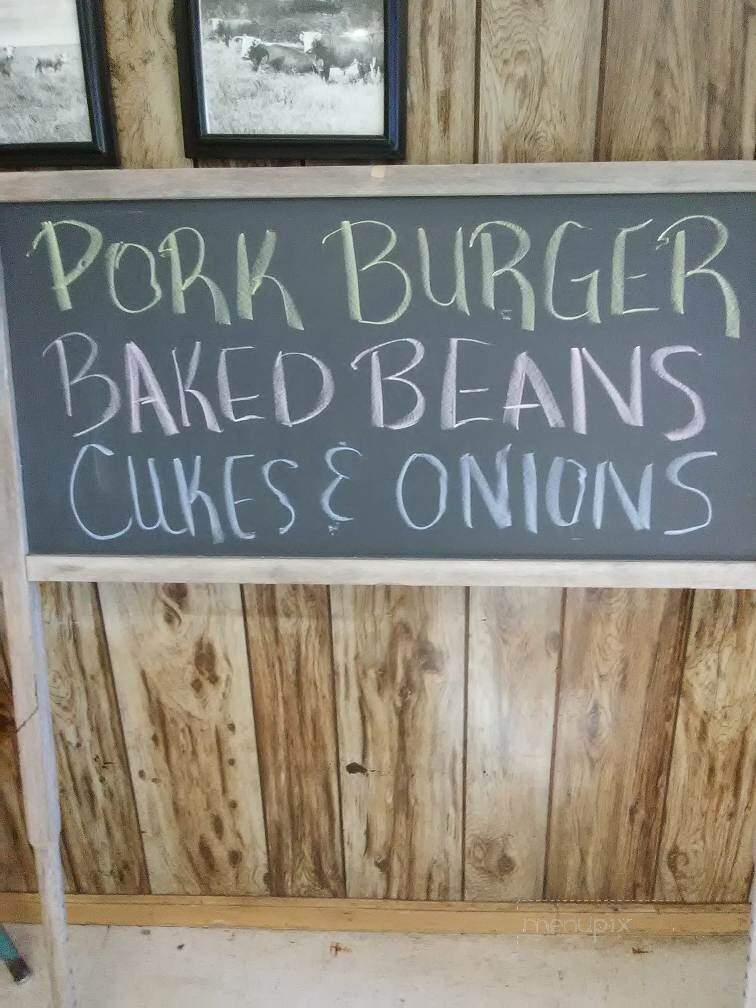 PORK BURGER
BAKED BEANS
CUKES & ONIONS
menupix